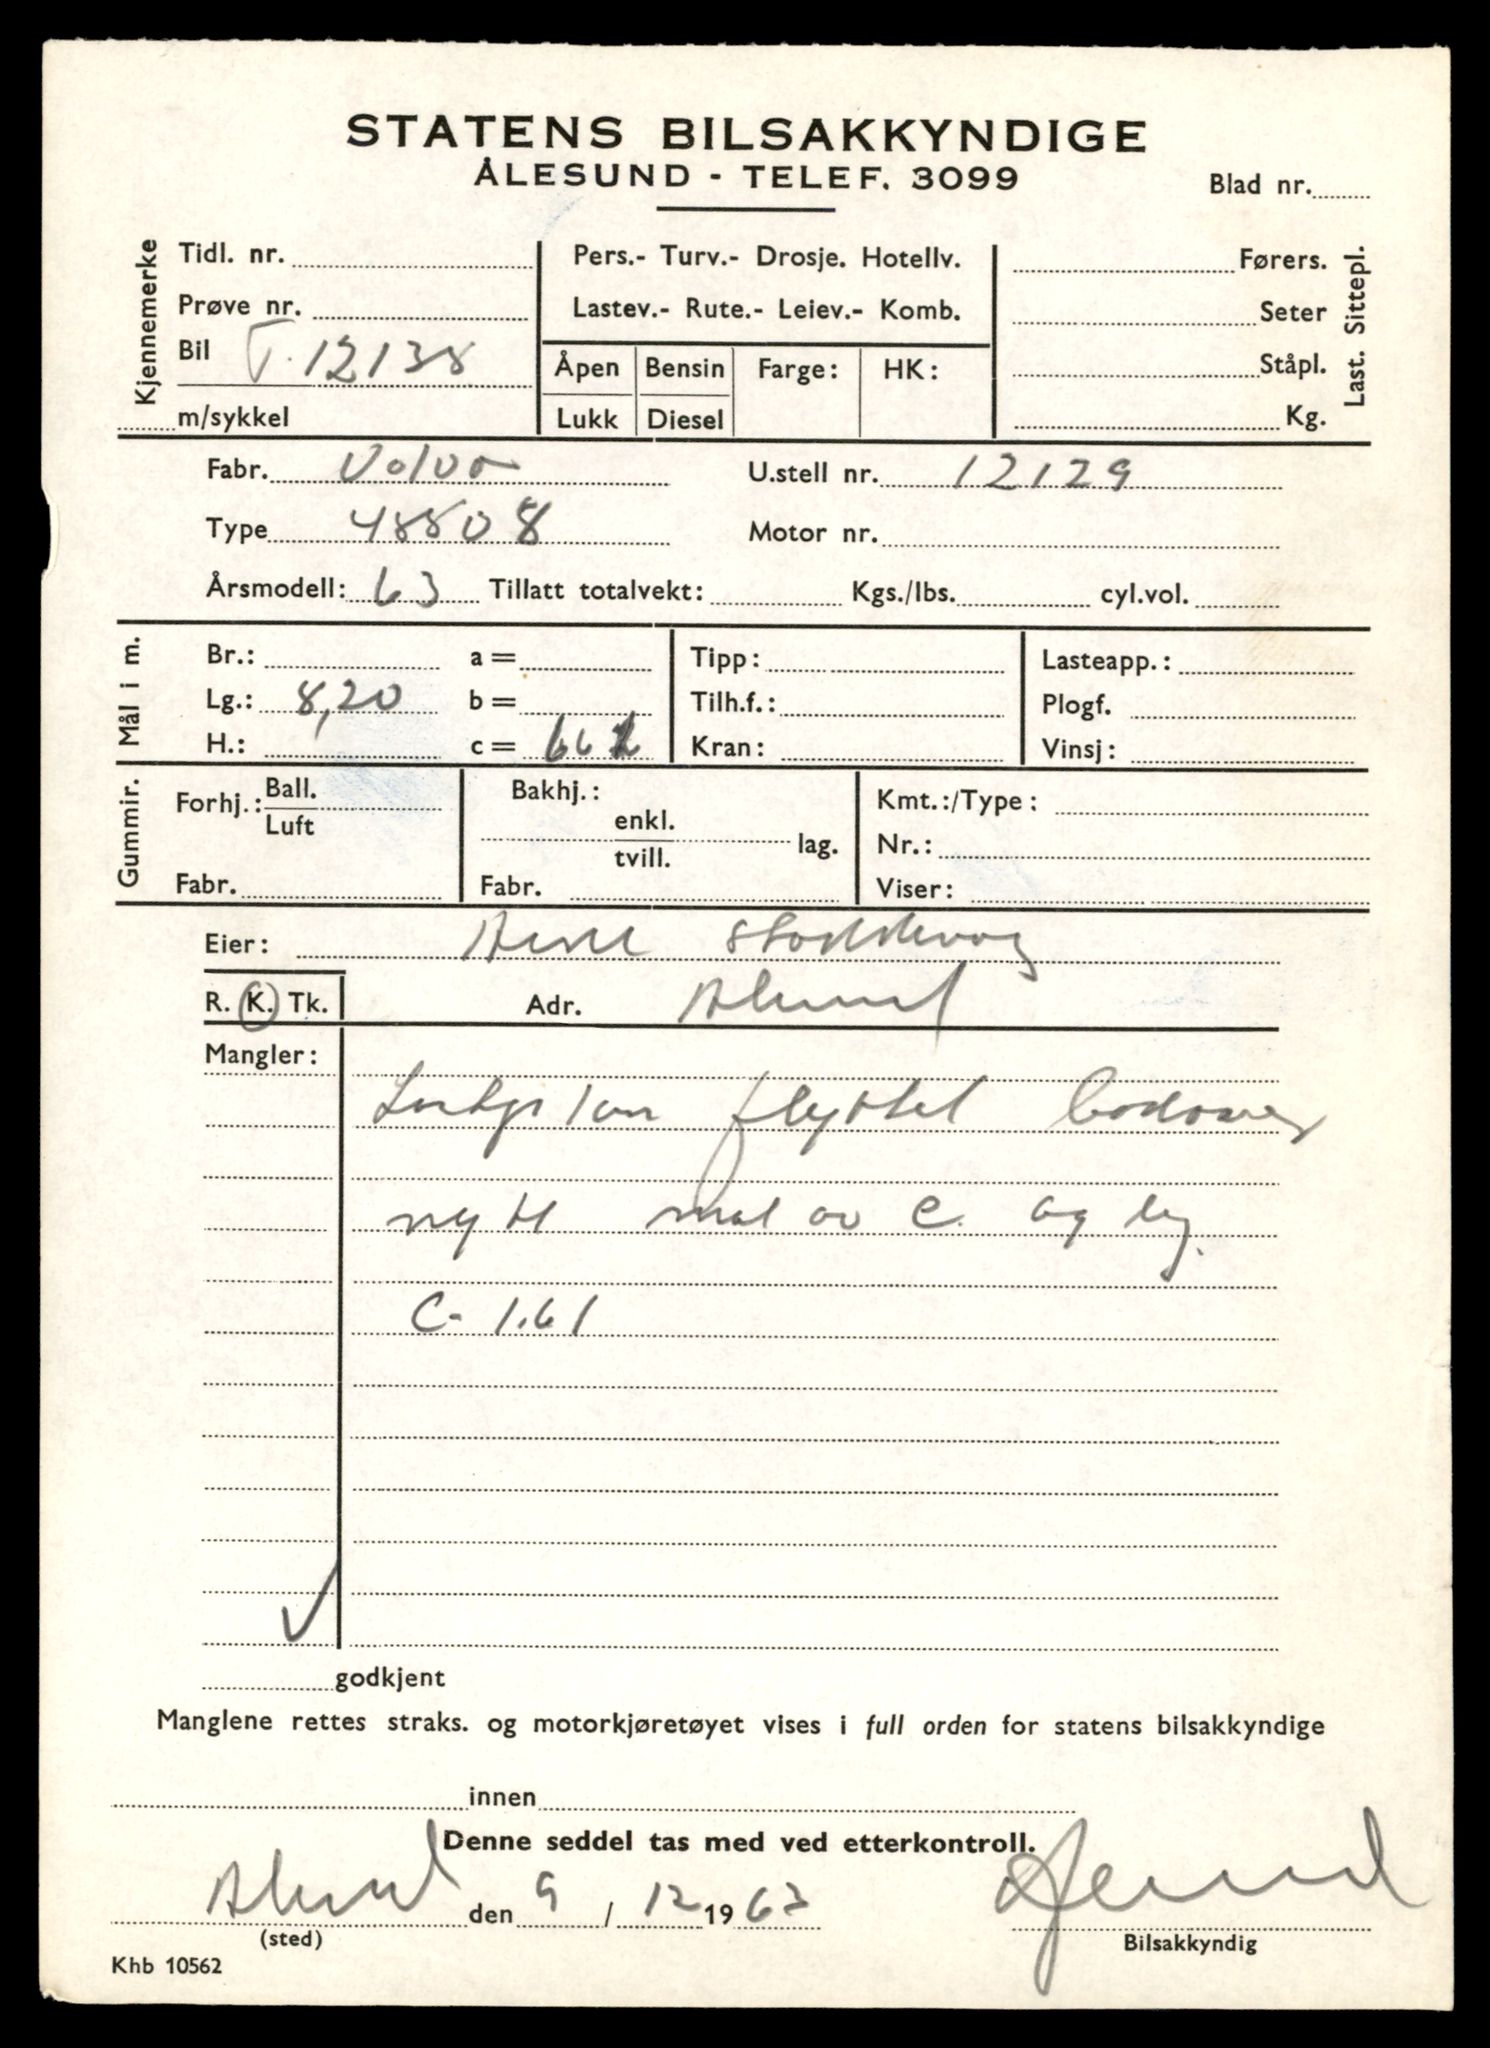 STATENS BILSAKKYNDIGE
ÅLESUND - TELEF. 3099
Blad nr.
Kjennemerke
Tidl. nr.
Prøve nr.
Bil T-12138
m/sykkel
Pers.- Turv.- Drosje. Hotellv.
Lastev.- Rute.- Leiev.- Komb.
Åpen Bensin Farge: HK:
Lukk Diesel
Førers.
Seter
Ståpl.
Kg.
Last. Sittepl.
Fabr. Volvo U.stell nr. 12129
Type 48808 Motor nr.
Årsmodell: 63 Tillatt totalvekt: Kgs./lbs. cyl.vol.
Mål i m.
Br.: a = Tipp: Lasteapp.:
Lg.: 8,20 b = Tilh.f.: Plogf.
H.: c = Kran: Vinsj:
Gummir.
Forhj.: Ball.
Luft
Fabr.
Bakhj.:
enkl.
tvill. lag.
Fabr.
Kmt.:/Type:
Nr.:
Viser:
Eier: Arne
R. K. Tk. Adr. Ålesund
Mangler:
flyttet bakover
nytt mal av C. og lg.
C- 1.61
godkjent
Manglene rettes straks. og motorkjøretøyet vises i full orden for statens bilsakkyndige
innen
Denne seddel tas med ved etterkontroll.
Ålesund den 9 / 12 1963
(sted)
Bilsakkyndig
Khb 10562